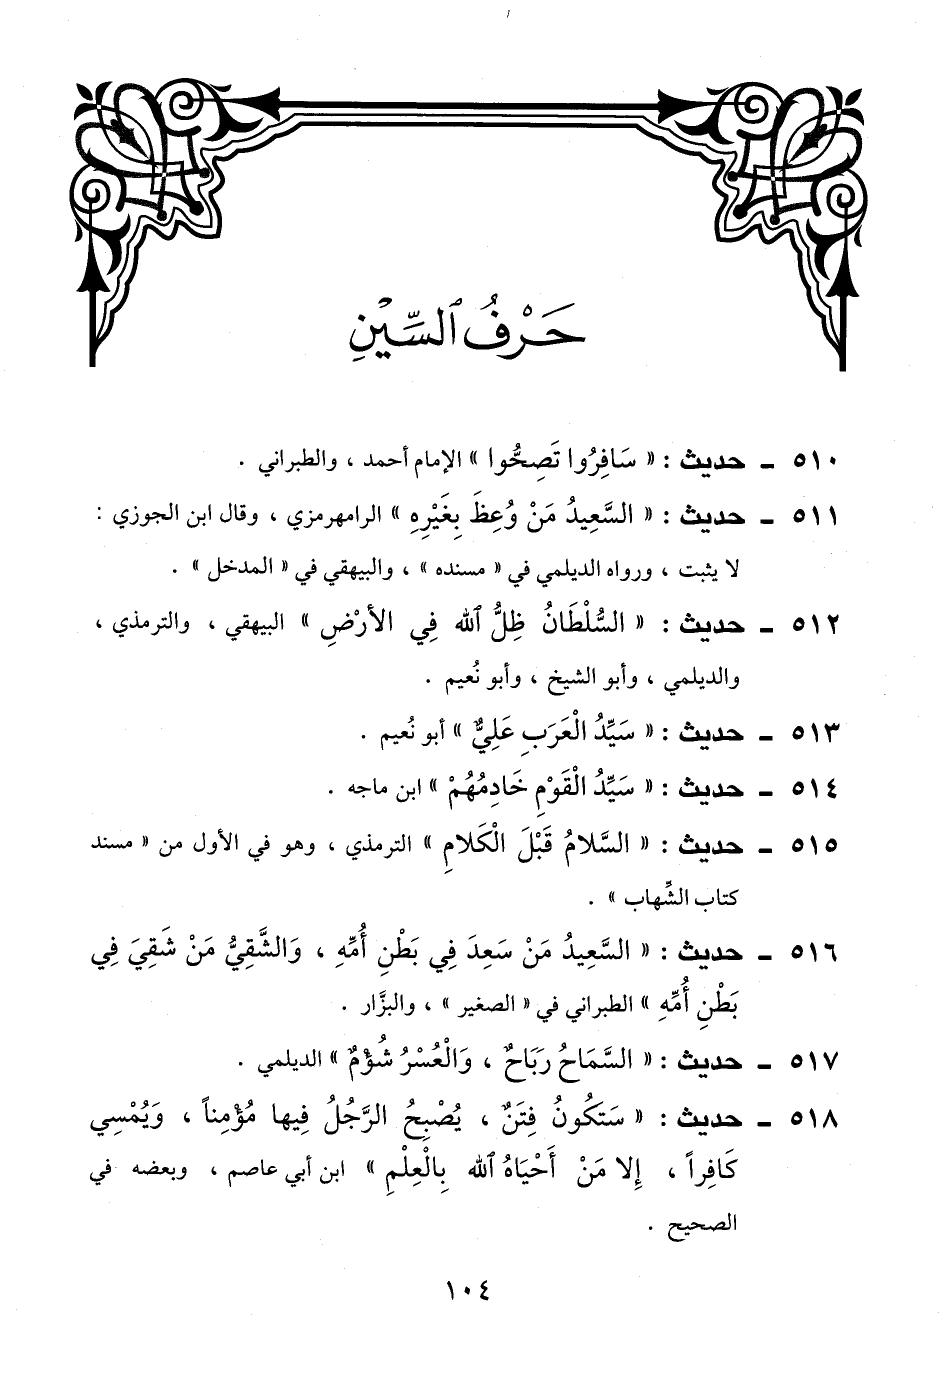 حَرْفُ ٱلسِّيْنِ
٥١٠ ـ حديث : « سَافِرُوا تَصِحُّوا » الإمام أحمد ، والطبراني .
٥١١ ـ حديث : « السَّعِيدُ مَنْ وُعِظَ بِغَيْرِهِ » الرامهرمزي ، وقال ابن الجوزي :
لا يثبت ، ورواه الديلمي في « مسنده » ، والبيهقي في « المدخل » .
٥١٢ ـ حديث : « السُّلْطَانُ ظِلُّ ٱلله فِي الأرْضِ » البيهقي ، والترمذي ،
والديلمي ، وأبو الشيخ ، وأبو نُعيم .
٥١٣ ـ حديث : « سَيِّدُ الْعَرَبِ عَلِيٌّ » أبو نُعيم .
٥١٤ ـ حديث : « سَيِّدُ الْقَوْمِ خَادِمُهُمْ » ابن ماجه .
٥١٥ ـ حديث : « السَّلامُ قَبْلَ الْكَلامِ » الترمذي ، وهو في الأول من « مسند
كتاب الشِّهاب » .
٥١٦ ـ حديث : « السَّعِيدُ مَنْ سَعِدَ فِي بَطْنِ أُمِّهِ ، وَالشَّقِيُّ مَنْ شَقِيَ فِي
بَطْنِ أُمِّهِ » الطبراني في « الصغير » ، والبزَّار .
٥١٧ ـ حديث : « السَّمَاحُ رَبَاحٌ ، وَالْعُسْرُ شُؤْمٌ » الديلمي .
٥١٨ ـ حديث : « سَتَكُونُ فِتَنٌ ، يُصْبِحُ الرَّجُلُ فِيها مُؤْمِناً ، وَيُمْسِي
كَافِراً ، إِلا مَنْ أَحْيَاهُ ٱلله بِالْعِلْمِ » ابن أبي عاصم ، وبعضه في
الصحيح .
١٠٤